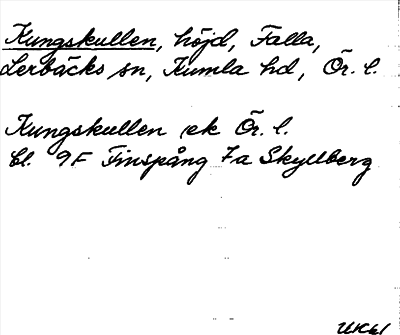 Kungskullen, höjd, Falla,
Lerbäcks sn, Kumla hd, Ör. l.
Kungskullen ek Ör. l.
bl. 9F Finspång 7a Skyllberg